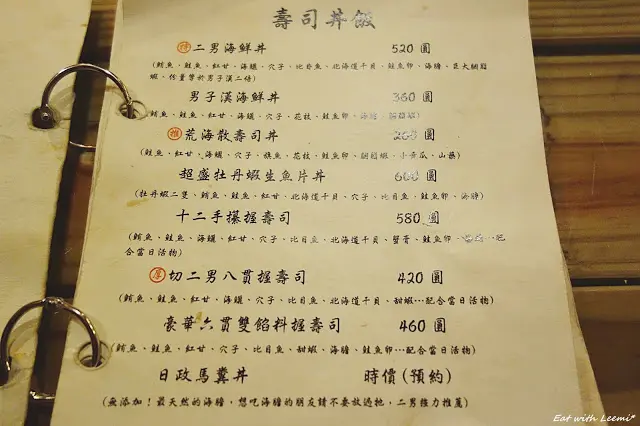 壽司丼飯
特 二男海鮮丼 520 圓
(鮪魚、鮭魚、紅甘、海鱺、穴子、比目魚、北海道干貝、鮭魚卵、海膽、巨大胭脂
蝦、份量等於男子漢二倍)
男子漢海鮮丼 360 圓
(鮪魚、鮭魚、紅甘、海鱺、穴子、花枝、鮭魚卵、海膽、胭脂蝦)
推 荒海散壽司丼 圓
(鮭魚、紅甘、海鱺、穴子、旗魚、花枝、鮭魚卵、胭脂蝦、小黃瓜、山藥)
超盛牡丹蝦生魚片丼 圓
(牡丹蝦二隻、鮪魚、鮭魚、紅甘、海鱺、北海道干貝、穴子、比目魚、鮭魚卵、海膽)
十二手攥握壽司 580 圓
(鮪魚、鮭魚、海鱺、紅甘、穴子、比目魚、北海道干貝、蟹膏、鮭魚卵、配
合當日活物)
厚 切二男八貫握壽司 420 圓
(鮪魚、鮭魚、紅甘、海鱺、穴子、比目魚、北海道干貝、甜蝦…配合當日活物)
豪華六貫雙餡料握壽司 460 圓
(鮪魚、鮭魚、紅甘、穴子、比目魚、甜蝦、海膽、鮭魚卵…配合當日活物)
日政馬糞丼 時價(預約)
(無添加!最天然的海膽,想吃海膽的朋友請不要放過牠,二男強力推薦)
Eat with Leemi*